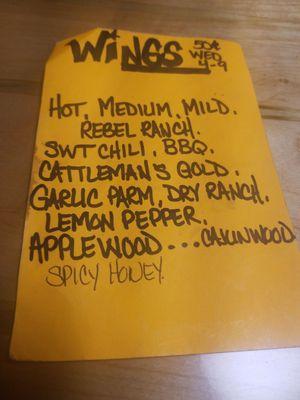 WiNGS 50¢
WED
4-9
HOT, MEDIUM, MILD.
REBEL RANCH.
SWT CHILI, BBQ.
CATTLEMAN'S GOLD.
GARLIC PARM, DRY RANCH,
LEMON PEPPER.
APPLEWOOD... CAJUNWOOD
SPICY HONEY.